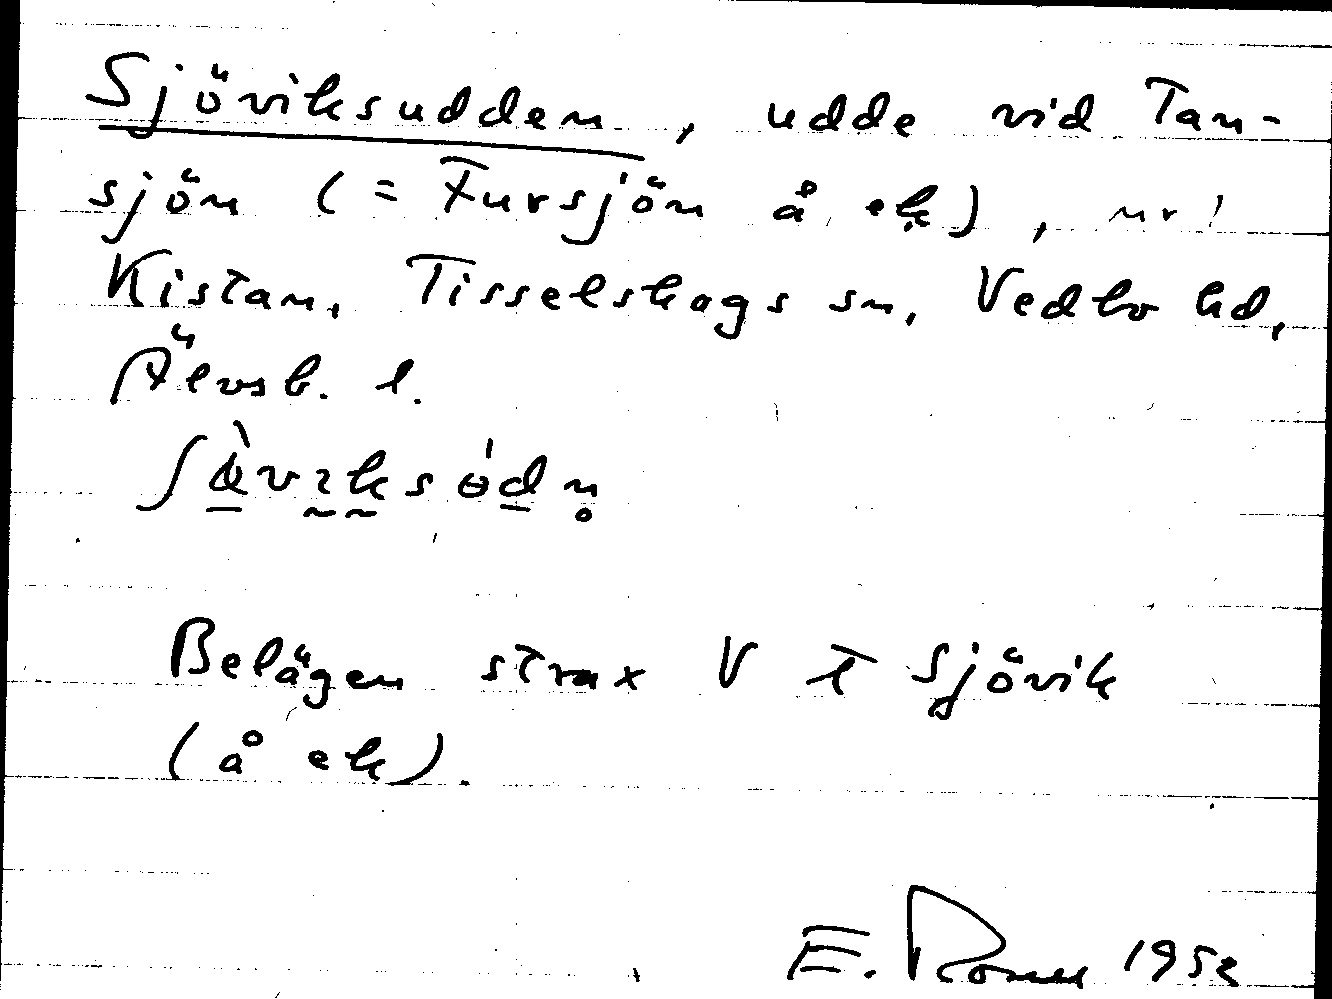 Sjöviksudden, udde vid Tan-
sjön (= Fursjön å ek), nr 1
Kistan, Tisselskogs sn, Vedbo hd,
Älvsb. l.
Belägen strax V t Sjövik
(å ek).
E. 1952